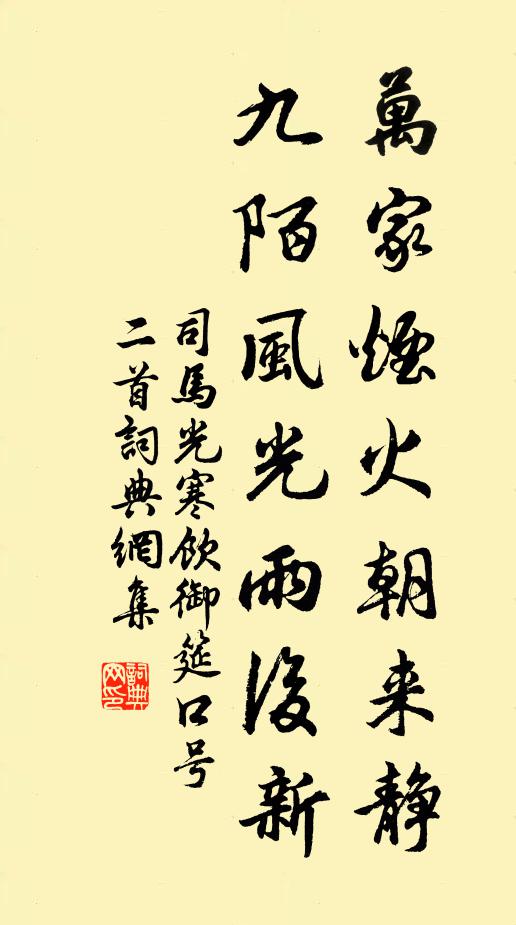 萬家煙火朝来静
九陌風光雨後新
司馬光寒飲御筵口号
二首詞典網集
詞典網印